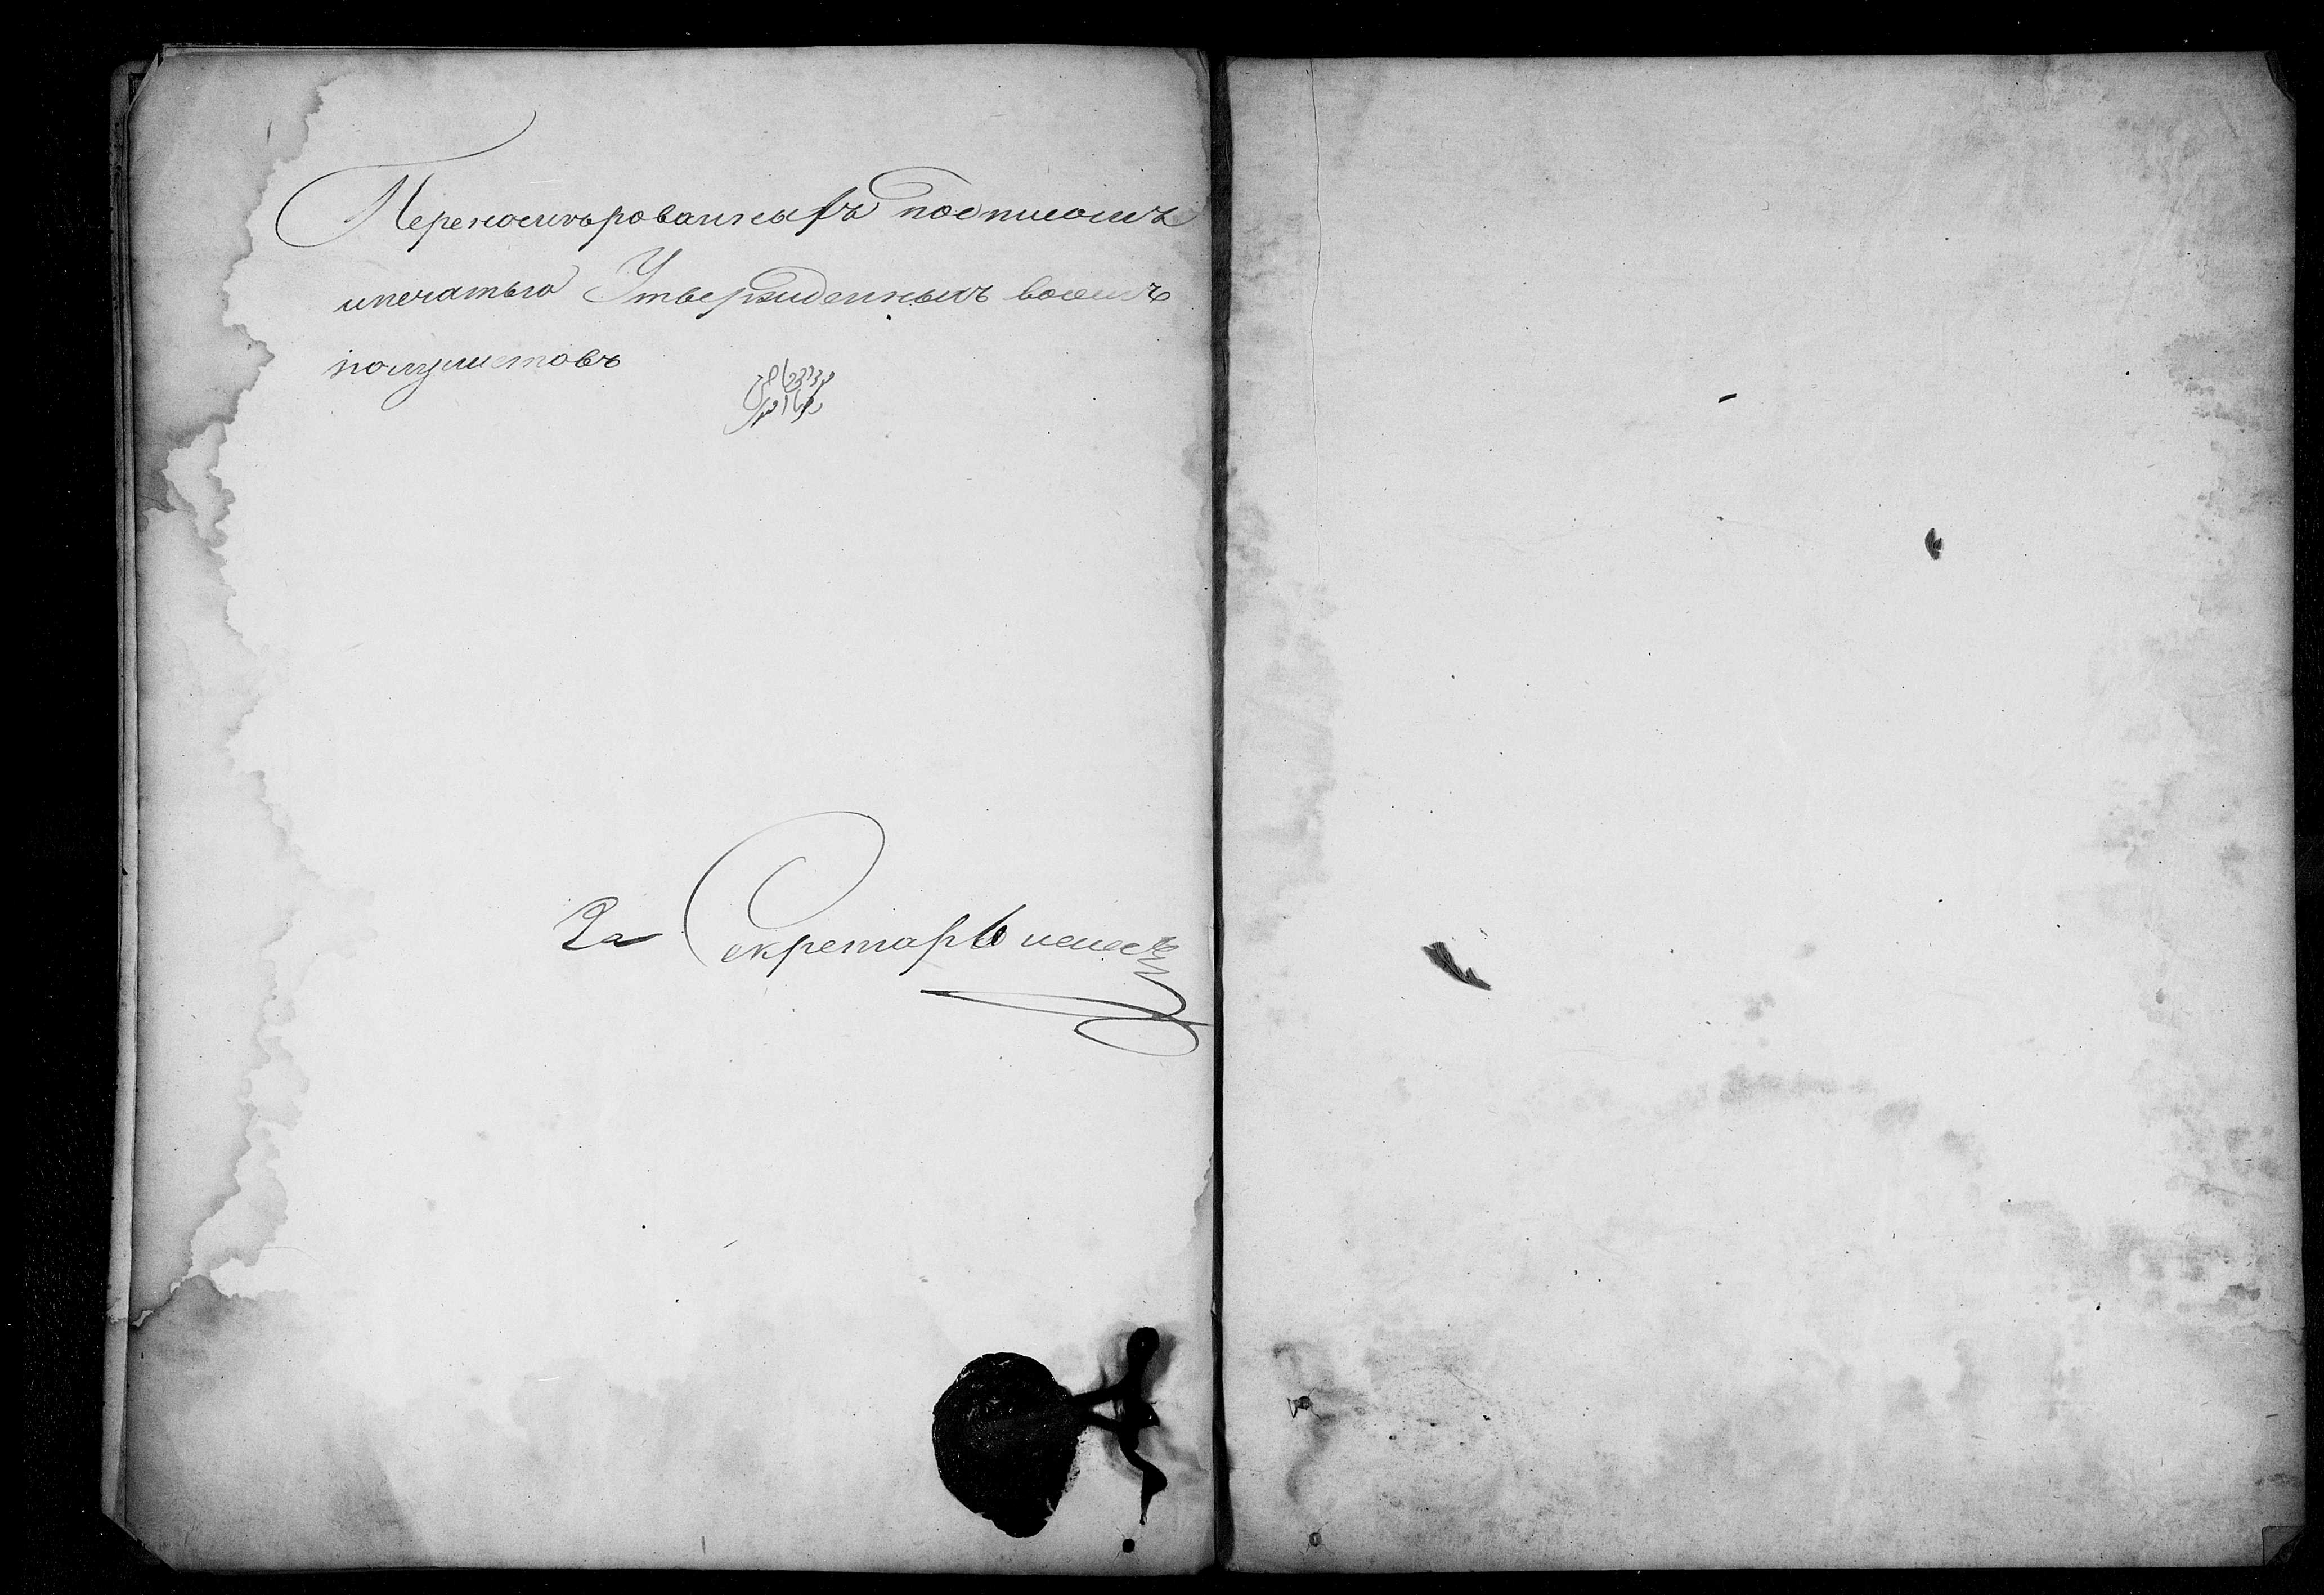 Перенумърованнахъ подписомъ
ипечатью Утвержденныхъ восемъ
полулистовъ
За Секретарь